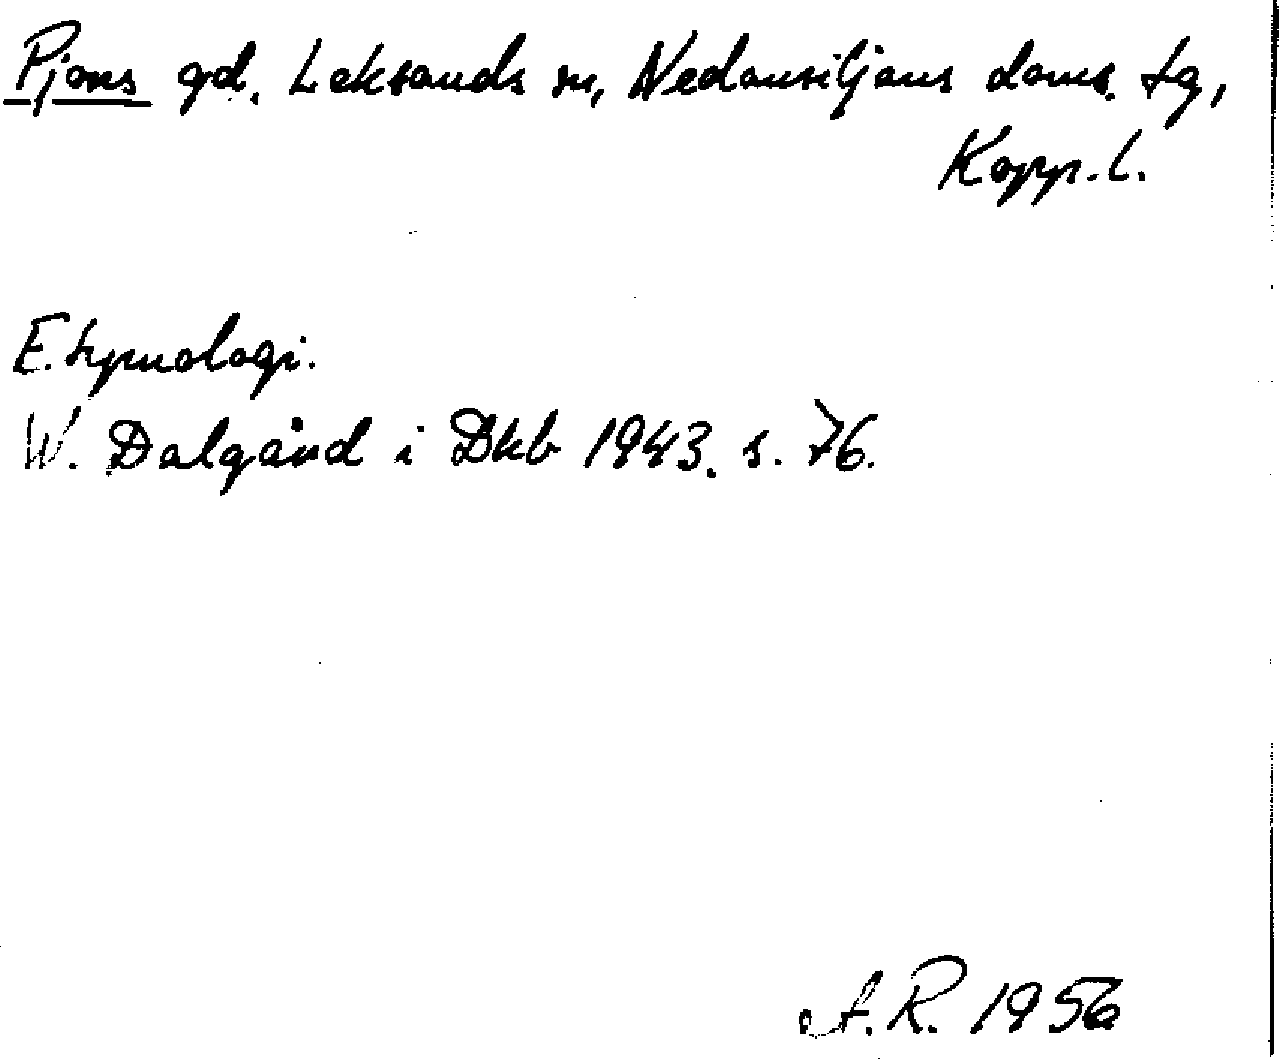 Pjons gd. Leksands sn, Nedansiljans doms. tg,
Kopp. l.
Etymologi.
W. Dalgård i Dkb 1943. s. 76.
A. R. 1956